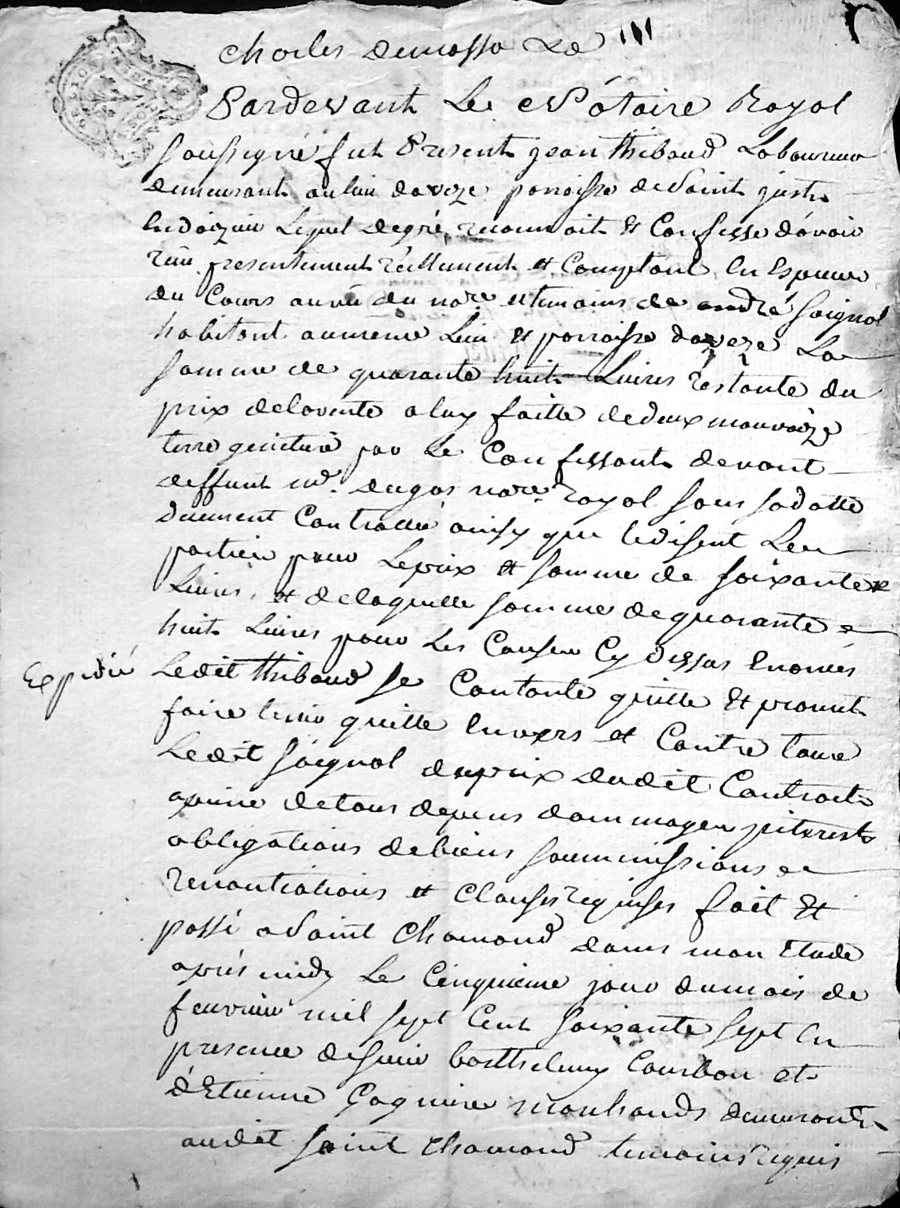 Pardevant Le Nótaire Royal
soussigné fut Present jean thibaud Laboureur
demeurant au lieu daveze parroisse de Saint just
en doizieu Lequel degré reconnoit et Confesse dávoir
reçu presentement réellement et Comptant en Especes
du Cours au vû du nore et temoins de andré soignol
habitant au meme Lieu et parroisse daveze La
somme de quarante huit Livres réstante du
prix de la vente a luy faitte de deux mauvaize
terre par Le Confessant devant
deffunt me. dugas nore. royal sous sa datte
duement Controllé ainsy que le disent Les
parties pour Le prix et somme de soixante
Livres, et de laquelle somme de quarante
huit Livres pour Les Causes Cy dessus Enoncés
Expedié
Ledit thibaud se Contante quitte et promet
faire tenir quitte Envers et Contre tous
Ledit soignol du prix dudit Contract
a peine de tous depens dommages jnterests
obligations de biens soummissions
renontiations et Clauses requises fait et
passé a Saint Chamond dans mon Etude
aprés midy Le Cinquieme jour du mois de
fevrier mil sept Cent soixante sept En
presence de sieur barthelemy Courbon et
d'Etienne Gagniere marchands demeurants
audit saint Chamond temoins requis